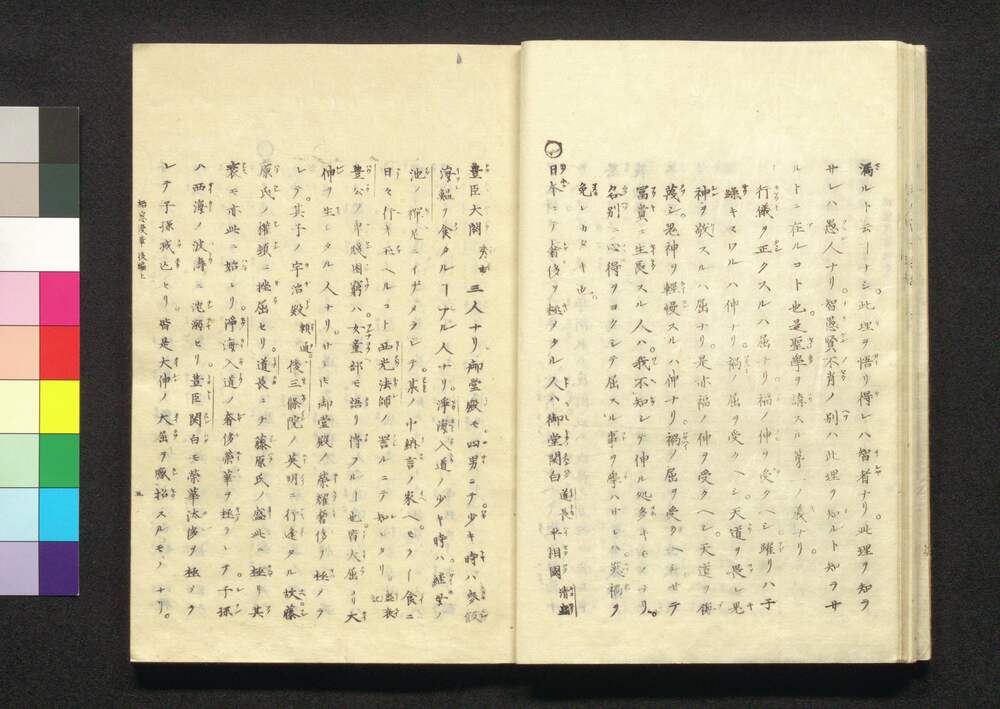 濁ルト云ーナシ此理ヲ悟リ得レハ智者ナリ此理ヲ知ラ
サレハ愚人ナリ智愚賢不肖ノ別ハ此理ヲ知ルト知ラサ
ルトニ在ルコト也是聖學ヲ講スル第一ノ義ナリ
行儀ヲ正クスルハ屈ナリ福ノ伸ヲ受クヘシ躍リハ子
躁キスワルハ伸ナリ禍ノ屈ヲ受クヘシ天道ヲ畏レ鬼
神ヲ敬スルハ屈ナリ是亦福ノ伸ヲ受クヘシ天道ヲ侮
蔑シ鬼神ヲ輕慢スルハ伸ナリ禍ノ屈ヲ受クヘキサテ
冨貴ニ生長スル人ハ我不知シテ伸ル処多キモノナリ
名別ニ心得ヲヨクシテ屈スル事ヲ學ハサレハ災禍ヲ
免レカタキ也
○日本ニテ奢侈ヲ極メタル人ハ御堂関白 道長 平相國 清盛
豊臣大閤 秀吉 三人ナリ御堂殿モ四男ニテ少キ時ハ麥飯
海鰛ヲ食タルーアル人ナリ淨海入道ノ少キ時ハ経坐シ
池ノ禅尼ニイザメラシテ某ノ中納言ノ家ヘモクー食ニ
日々行キ玉ヘルコト西光法師ノ詈ルニテ知レタリ 盛衰記
豊公ノ卑賤困窮ハ女童部モ語リ傳フルー也皆大屈ヨリ大
伸ヲ生シタル人ナリサレ𪜈御堂殿ノ榮耀奢侈ヲ極メタ
レテ其子ノ宇治殿 頼通 後三條院ノ英明ニ行逢タル 故藤
原氏ノ權頓ニ挫屈セリ道長ニテ藤原氏ノ盛此ニ極リ其
衰モ亦此ニ始レリ淨海入道ノ奢侈榮華ヲ極ラシテ子孫
ハ西海ノ波濤ニ沱溺セリ豊臣関白モ榮華汰侈ヲ極メタ
レテ子孫滅亡セリ皆是大伸ノ大屈ヲ感招スルモノナリ
五